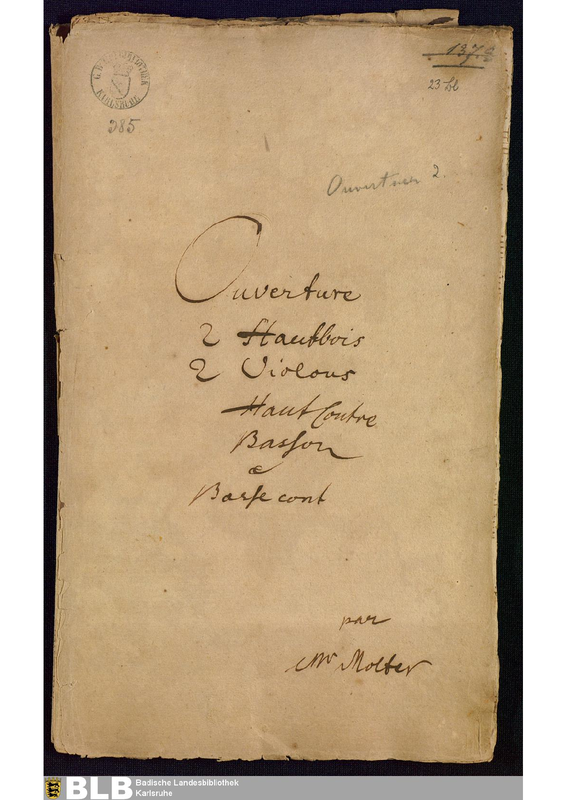 137.
23 bl
KARLSRUHE
385
Ouverture 2.
Ouverture
2 Hautbois
2 Violons
Haut Contre
Basson
&
Basse cont
par
Mr Molter
BLB
Badische Landesbibliothek
Karlsruhe